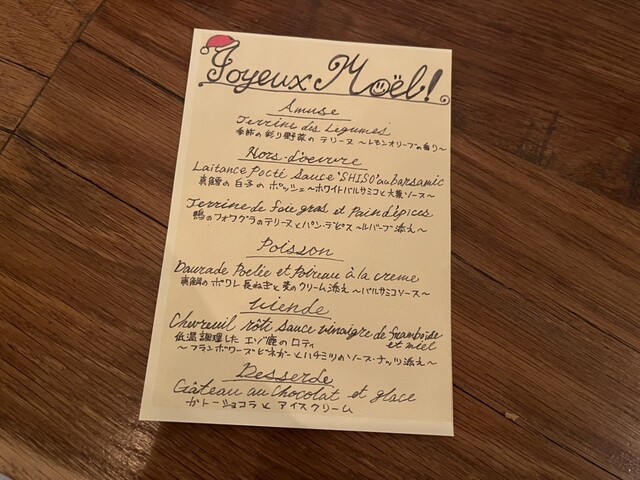 Joyeux Noël!
Amuse
Terrine des Legumes
季節の彩り野菜の テリーヌ ～レモンオリーブの香り～
Hors-d'oeuvre
Laitance Pocté Sauce "SHISO" au barsamic
真鱈の白子の ポッシェ～ホワイトバルサミコと大葉ソース～
Terrine de foie gras et Pain d'épices
鴨のフォワグラのテリーヌとパン・デピス ～ルバーブ添え～
Poisson
Daurade Poelée et Poireau à la creme
真鯛のポワレ 長ねぎと 麦のクリーム添え ～バルサミコソース～
Viende
Chevreuil rôti sauce vinaigre de framboise
et miel
低温調理した エゾ鹿の ロティ
～フランボワーズ・ビネガーとハチミツのソース・ナッツ添え～
Desserde
Gâteau au Chocolat et glace
ガトーショコラと アイスクリーム